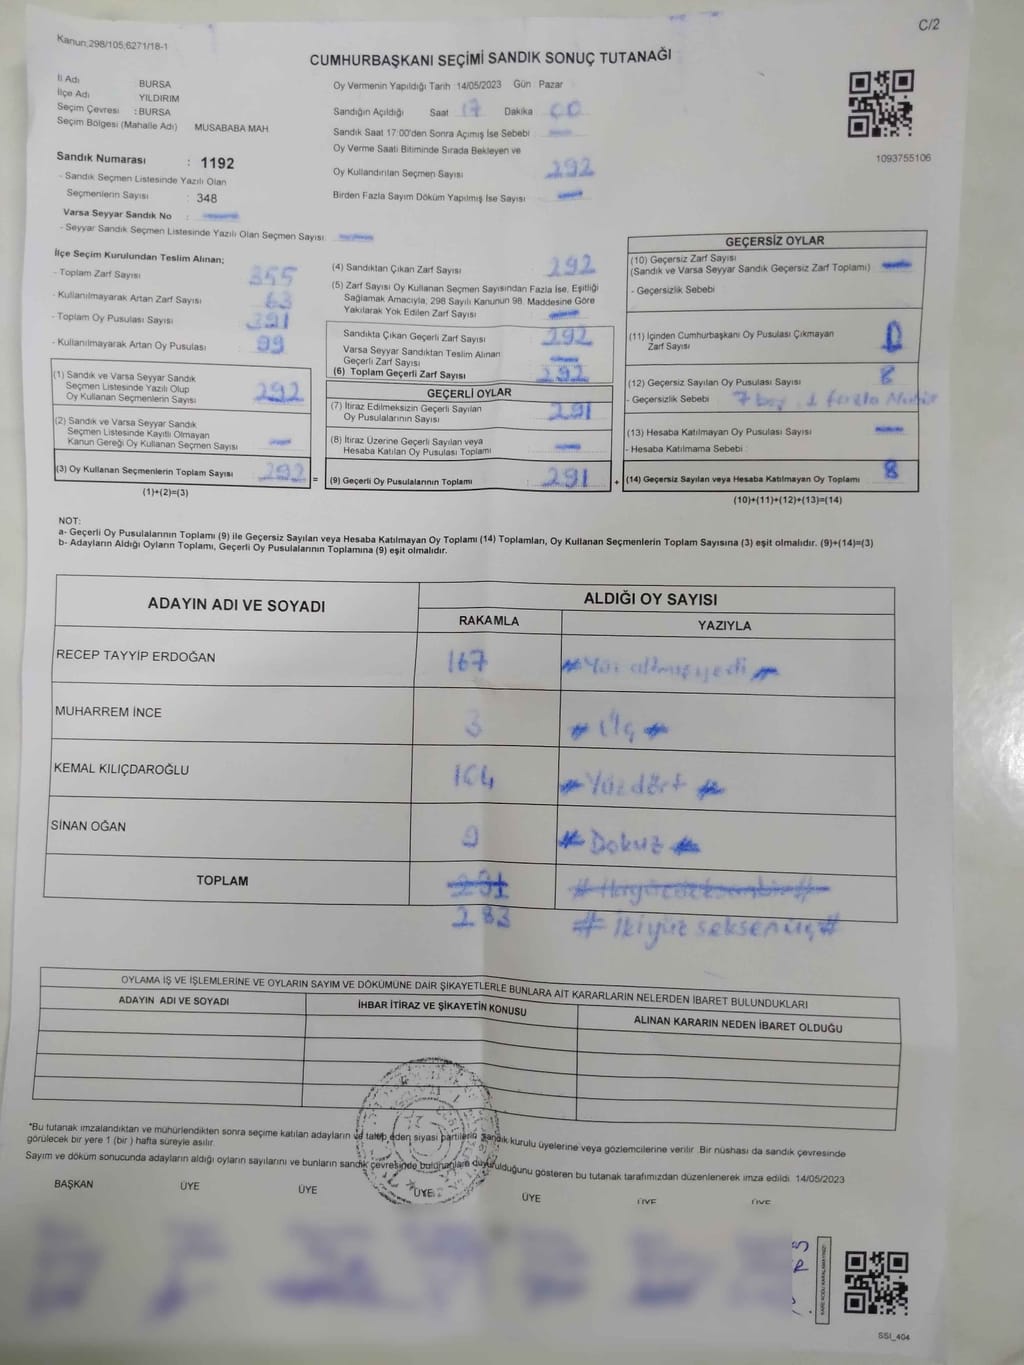 C/2
Kanun;298/105;6271/18-1
CUMHURBAŞKANI SEÇİMİ SANDIK SONUÇ TUTANAĞI
İl Adı BURSA
İlçe Adı YILDIRIM
Seçim Çevresi : BURSA
Seçim Bölgesi (Mahalle Adı) MUSABABA MAH
Sandık Numarası : 1192
- Sandık Seçmen Listesinde Yazılı Olan
Seçmenlerin Sayısı : 348
Varsa Seyyar Sandık No :
- Seyyar Sandık Seçmen Listesinde Yazılı Olan Seçmen Sayısı
Oy Vermenin Yapıldığı Tarih 14/05/2023 Gün Pazar
Sandığın Açıldığı Saat 17 Dakika 00
Sandık Saat 17:00'den Sonra Açımış İse Sebebi
Oy Verme Saati Bitiminde Sırada Bekleyen ve
Oy Kullandırılan Seçmen Sayısı 292
Birden Fazla Sayım Döküm Yapılmış İse Sayısı
1093755106
İlçe Seçim Kurulundan Teslim Alınan;
- Toplam Zarf Sayısı 355
- Kullanılmayarak Artan Zarf Sayısı 63
- Toplam Oy Pusulası Sayısı 391
- Kullanılmayarak Artan Oy Pusulası 99
(1) Sandık ve Varsa Seyyar Sandık
Seçmen Listesinde Yazılı Olup
Oy Kullanan Seçmenlerin Sayısı 292
(2) Sandık ve Varsa Seyyar Sandık
Seçmen Listesinde Kayıtlı Olmayan
Kanun Gereği Oy Kullanan Seçmen Sayısı
(3) Oy Kullanan Seçmenlerin Toplam Sayısı 292 =
(1)+(2)=(3)
(4) Sandıktan Çıkan Zarf Sayısı 292
(5) Zarf Sayısı Oy Kullanan Seçmen Sayısından Fazla İse, Eşitliği
Sağlamak Amacıyla, 298 Sayılı Kanunun 98. Maddesine Göre
Yakılarak Yok Edilen Zarf Sayısı
Sandıkta Çıkan Geçerli Zarf Sayısı 292
Varsa Seyyar Sandıktan Teslim Alınan
Geçerli Zarf Sayısı
(6) Toplam Geçerli Zarf Sayısı 292
GEÇERLİ OYLAR
(7) İtiraz Edilmeksizin Geçerli Sayılan
Oy Pusulalarının Sayısı 291
(8) İtiraz Üzerine Geçerli Sayılan veya
Hesaba Katılan Oy Pusulası Toplamı
(9) Geçerli Oy Pusulalarının Toplamı 291 +
GEÇERSİZ OYLAR
(10) Geçersiz Zarf Sayısı
(Sandık ve Varsa Seyyar Sandık Geçersiz Zarf Toplamı)
- Geçersizlik Sebebi
(11) İçinden Cumhurbaşkanı Oy Pusulası Çıkmayan
Zarf Sayısı 0
(12) Geçersiz Sayılan Oy Pusulası Sayısı 8
- Geçersizlik Sebebi 7 boş, 1 fazla
(13) Hesaba Katılmayan Oy Pusulası Sayısı
- Hesaba Katılmama Sebebi
(14) Geçersiz Sayılan veya Hesaba Katılmayan Oy Toplamı 8
(10)+(11)+(12)+(13)=(14)
NOT:
a- Geçerli Oy Pusulalarının Toplamı (9) ile Geçersiz Sayılan veya Hesaba Katılmayan Oy Toplamı (14) Toplamları, Oy Kullanan Seçmenlerin Toplam Sayısına (3) eşit olmalıdır. (9)+(14)=(3)
b- Adayların Aldığı Oyların Toplamı, Geçerli Oy Pusulalarının Toplamına (9) eşit olmalıdır.
ADAYIN ADI VE SOYADI ALDIĞI OY SAYISI
RAKAMLA YAZIYLA
RECEP TAYYİP ERDOĞAN 167 # Yüz altmışyedi #
MUHARREM İNCE 3 # Üç #
KEMAL KILIÇDAROĞLU 104 # Yüzdört #
SİNAN OĞAN 9 # Dokuz #
TOPLAM 291 # İkiyüzseksenbir #
283 # İkiyüz seksenüç #
OYLAMA İŞ VE İŞLEMLERİNE VE OYLARIN SAYIM VE DÖKÜMÜNE DAİR ŞİKAYETLERLE BUNLARA AİT KARARLARIN NELERDEN İBARET BULUNDUKLARI
ADAYIN ADI VE SOYADI İHBAR İTİRAZ VE ŞİKAYETİN KONUSU ALINAN KARARIN NEDEN İBARET OLDUĞU
*Bu tutanak imzalandıktan ve mühürlendikten sonra seçime katılan adayların ve talep eden siyasi partilerin sandık kurulu üyelerine veya gözlemcilerine verilir. Bir nüshası da sandık çevresinde
görülecek bir yere 1 (bir) hafta süreyle asılır.
Sayım ve döküm sonucunda adayların aldığı oyların sayılarını ve bunların sandık çevresinde bulunanlara duyurulduğunu gösteren bu tutanak tarafımızdan düzenlenerek imza edildi. 14/05/2023
BAŞKAN ÜYE ÜYE ÜYE ÜYE ÜYE ÜYE
SSI_404